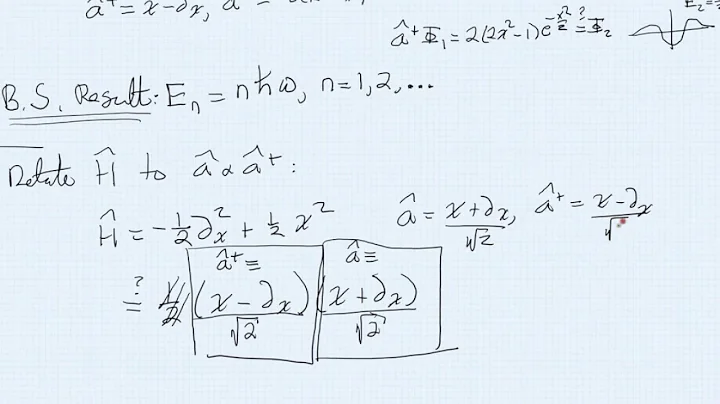 â⁺ = x-∂x,
â⁺Φ₁ = 2(2x²-1)e^(-x²/2) ≟ Φ₂
E₂ =
B.S. Result: Eₙ = nħω, n=1,2,...
Relate Ĥ to â & â⁺:
Ĥ = -½∂ₓ² + ½x²
â = (x+∂ₓ)/√2, â⁺ = (x-∂ₓ)/√
â⁺≡ â≡
≟ (x-∂ₓ)/√2 (x+∂ₓ)/√2